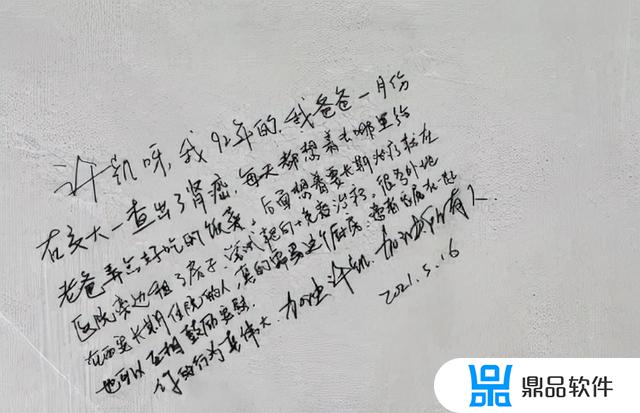 许凯呀，我92年的，我爸爸一月份
在交大一查出了肾癌，每天都想着去哪里给
老爸弄点好吃的饭菜，后面想着要长期治疗就在
医院旁边租了房子，尝试靶向+免疫治疗，很多外地
在西安长期住院的人，真的需要这个厨房，患者家属在此
也可以互相鼓励安慰
你的行为真伟大，加油许凯，加油所有人
2021.5.16
鼎品软件